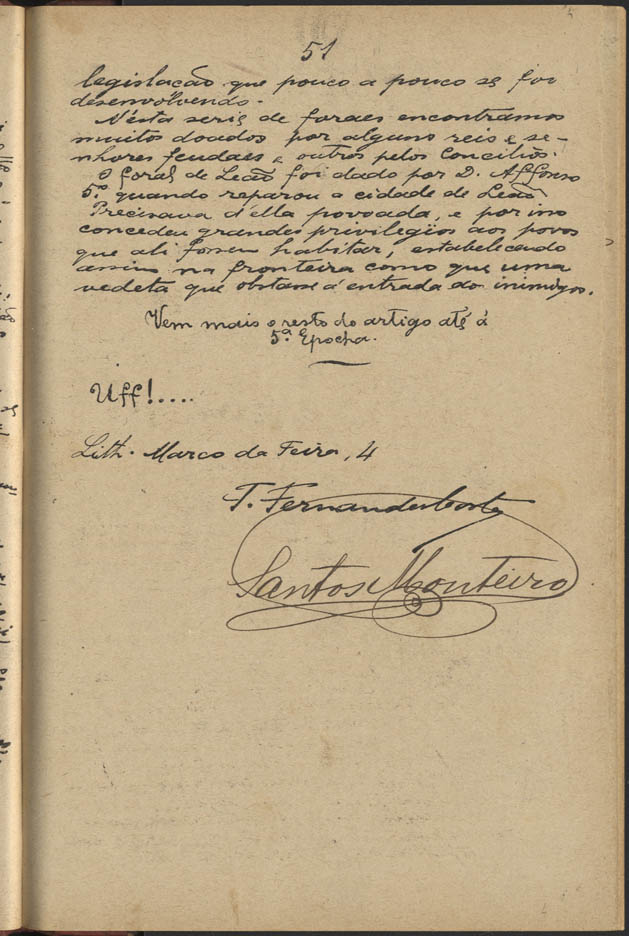 51
legislacão que pouco a pouco se foi
desenvolvendo.
N'ésta serie de foraes encontramos
muitos doados por alguns reis e se-
nhores feudaes e outros pelos Concilios.
O foral de Leão foi dado por D. Affonso
5º quando reparou a cidade de Leão
Precisava d'ella povoada, e por isso
concedeu grandes privilegios aos povos
que ali fossem habitar, estabelecendo
assim na fronteira como que uma
vedeta que obstasse á entrada do inimigo.
Vem mais o resto do artigo até á
5ª Epocha.
Uff!....
Lith. Marco da Feira, 4
T. Fernandes Costa
Santos Monteiro